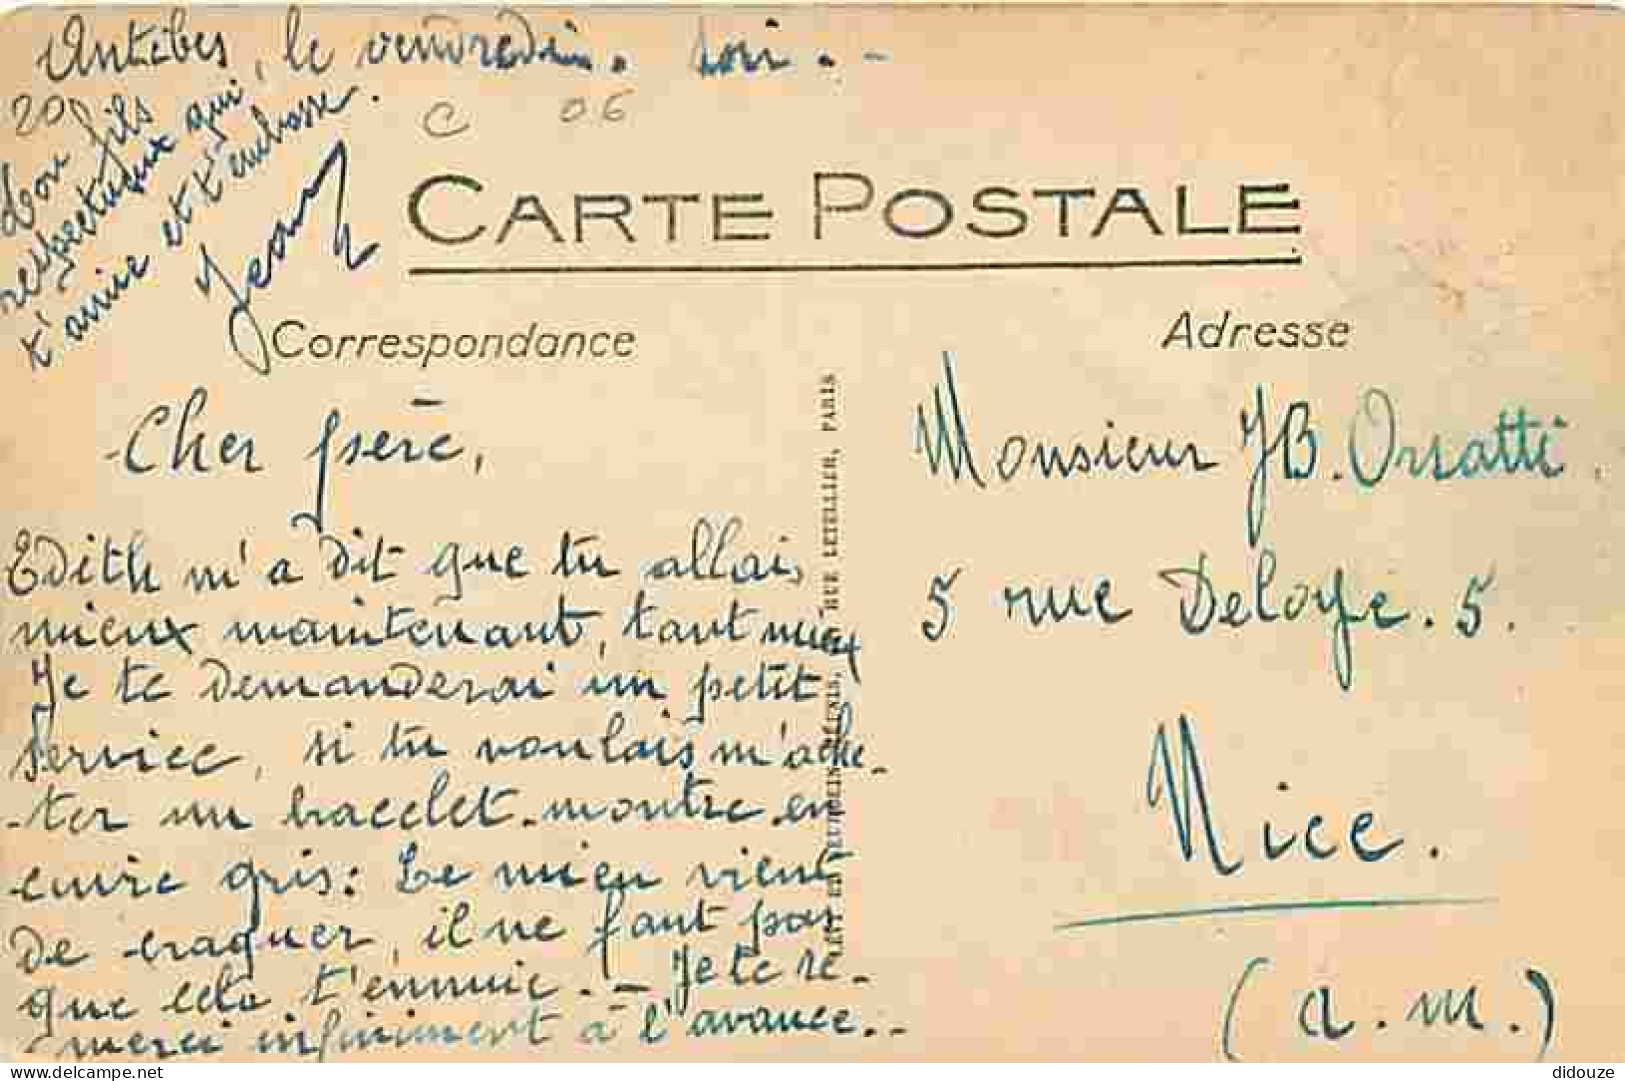 Antibes, le vendredi. soir. -
20
C 06
CARTE POSTALE
Correspondance
Adresse
Cher père,
Edith m'a dit que tu allais
mieux maintenant, tant mieux
Je te demanderai un petit
service, si tu voulais m'ache-
ter un bracelet-montre en
cuire gris: Le mien vient
de craquer, il ne faut pas
que cela t'ennuie. - Je te re-
merci infiniment à l'avance. -
Ton fils
respectueux qui
t'aime et t'embrasse.
Jean
RUE LETELLIER, PARIS
Monsieur JB. Orsatti
5 rue Deloye. 5.
Nice.
(a.m.)
didouze